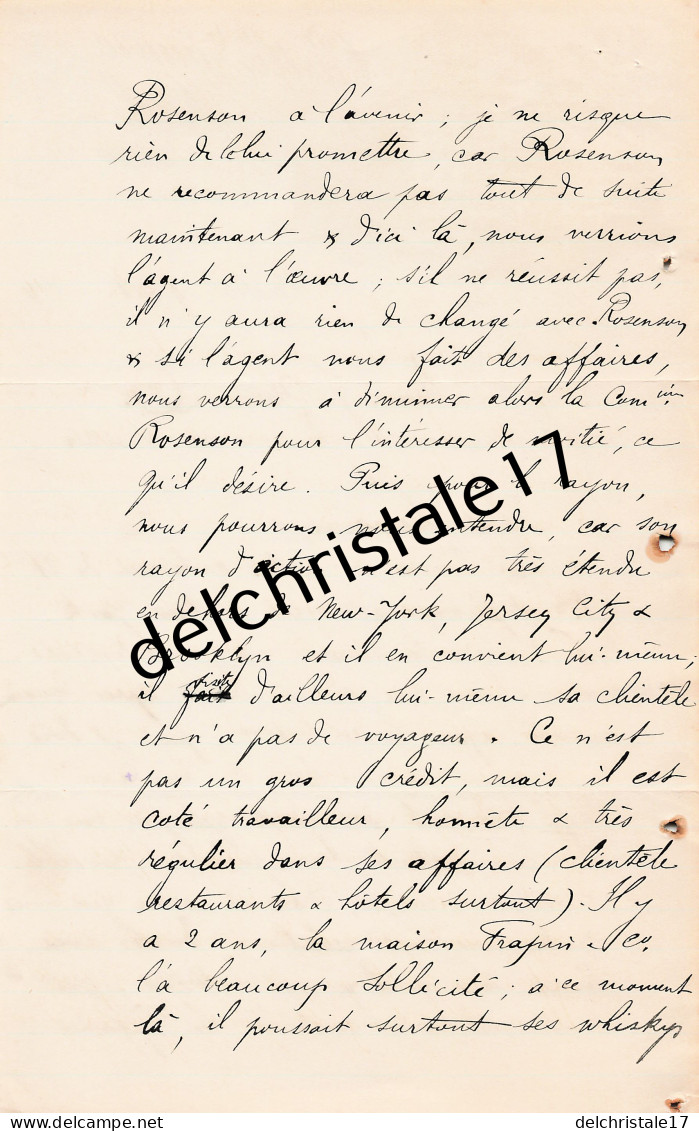 Rosenson à l'avenir ; je ne risque
rien de lui promettre, car Rosenson
ne recommandera pas tout de suite
maintenant & d'ici là, nous verrions
l'agent à l'œuvre ; s'il ne réussit pas,
il n'y aura rien de changé avec Rosenson
& si l'agent nous fait des affaires,
nous verrons à diminuer alors la Com^ion.
Rosenson pour l'intéresser de moitié, ce
qu'il désire. Puis pour le rayon,
nous pourrons nous entendre, car son
rayon d'action n'est pas très étendu
en dehors de New-York, Jersey City &
Brooklyn et il en convient lui-même ;
il visite d'ailleurs lui-même sa clientèle
et n'a pas de voyageur. Ce n'est
pas un gros crédit, mais il est
coté travailleur, honnête & très
régulier dans ses affaires (clientèle
restaurants & hôtels surtout). Il y
a 2 ans, la maison Frapin & Co.
l'a beaucoup sollicité ; à ce moment
là, il poussait surtout ses whiskys
delchristale17
delcampe.net
delchristale17